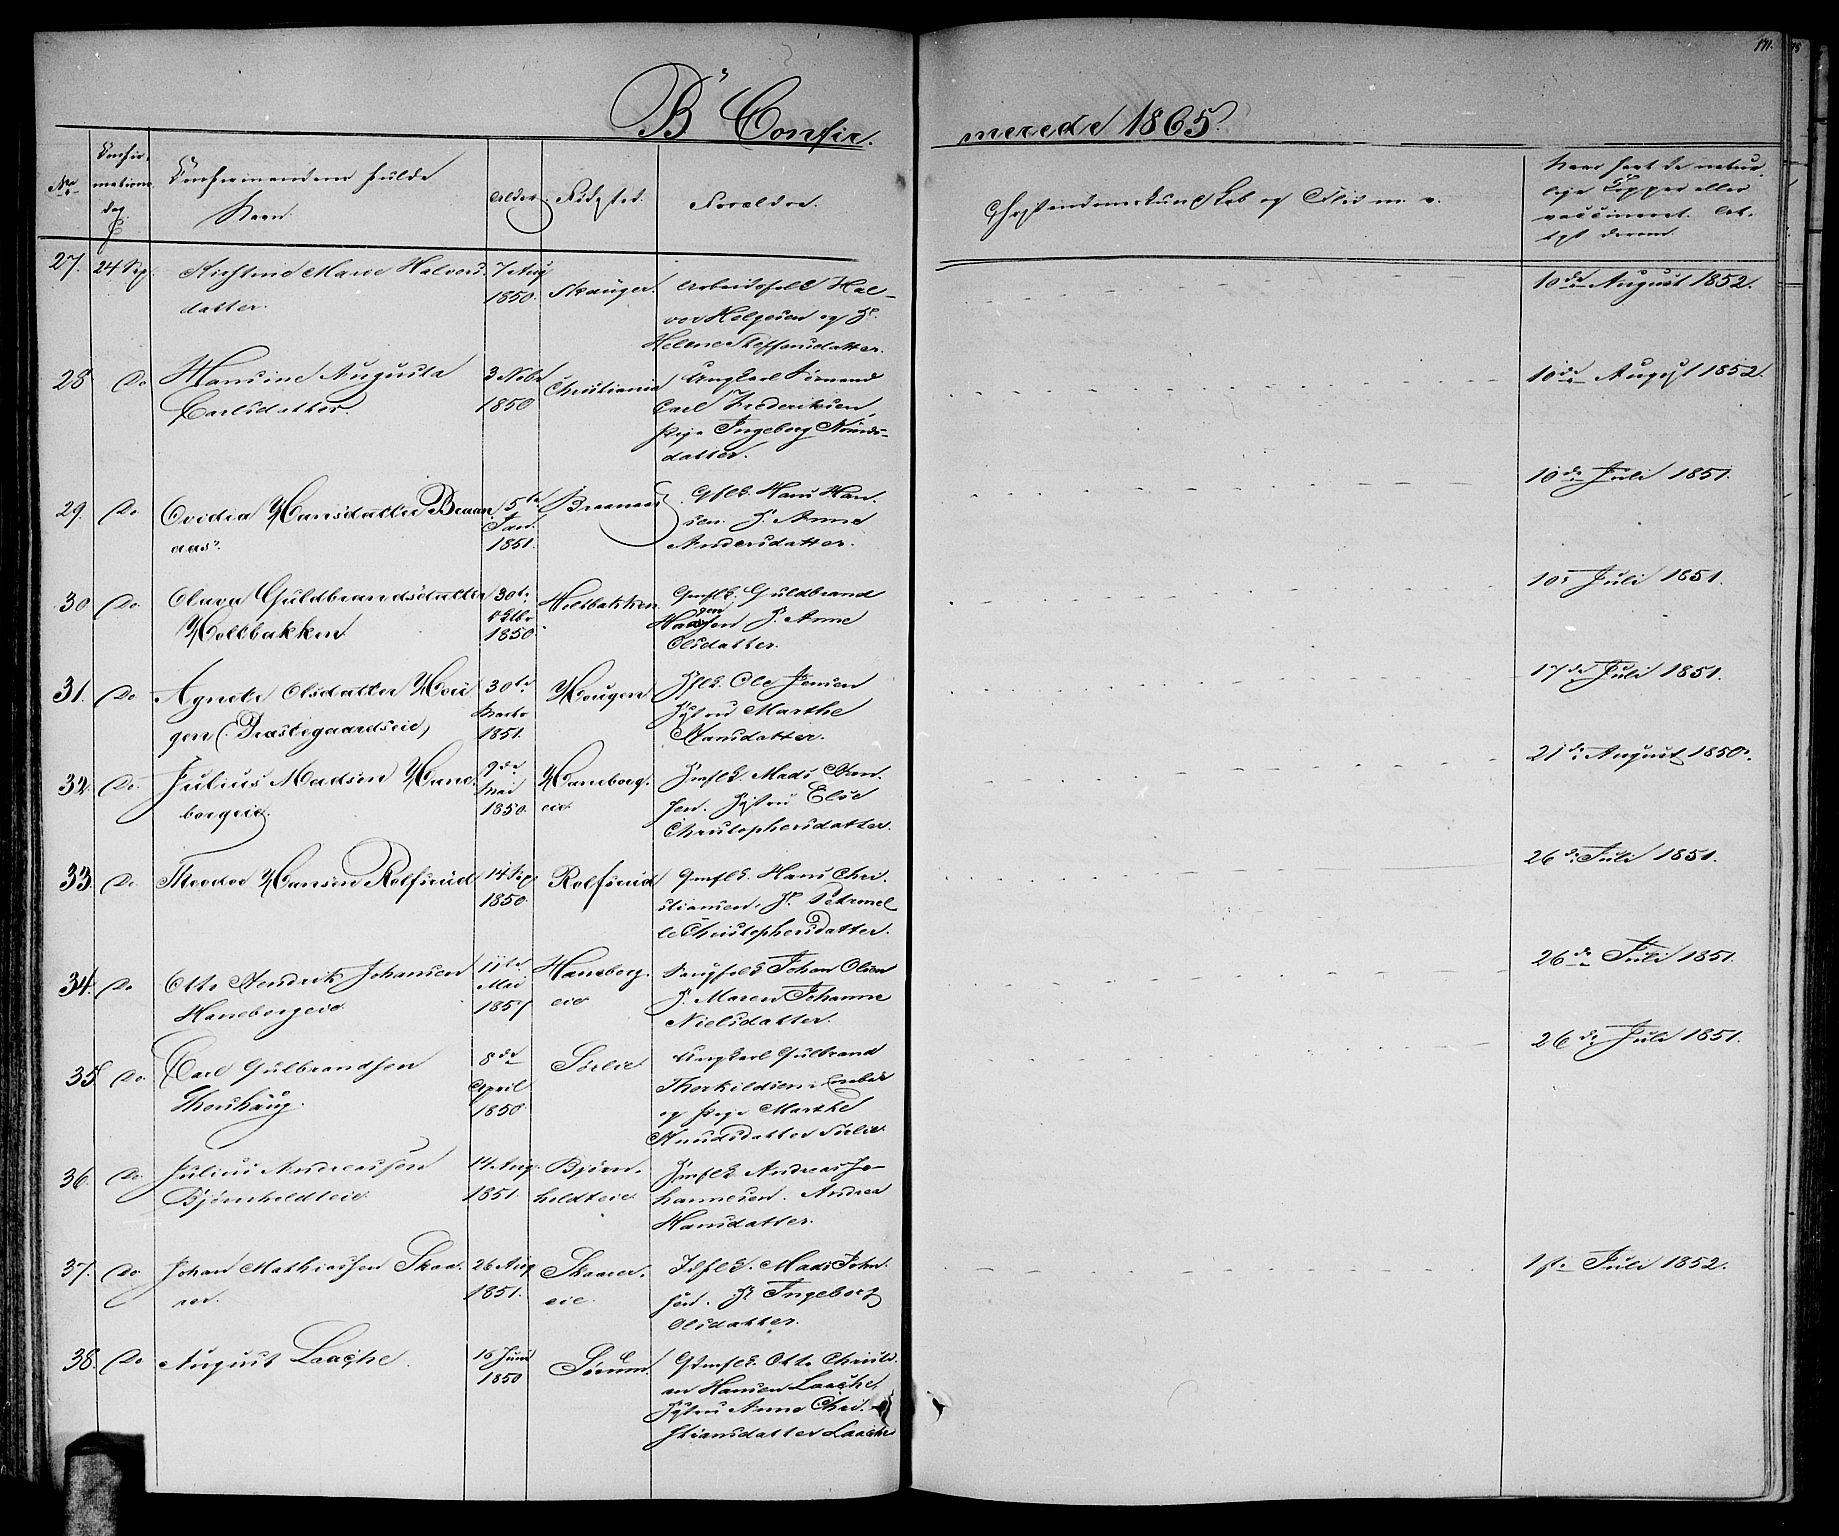 171.
B. Confir-
merede 1865.
No
Confir-
mations
dag.
Confirmandens fulde
Navn.
Alder.
Fødested.
Forældre.
Christendomskundskab og Flid m. v.
Naar havt de natur-
lige Kopper eller
vaccineret. At-
test derom.
27. 24 Sep. Kirstine Marie Halvors- 7 Aug
datter. 1850. Skauger. Arbeidsfolk Hal-
vor Helgesen og H.
Helene Steffensdatter. 10de August 1852.
28 Do Hansine Augusta 3 Nobr
Carlsdatter. 1850 Christiania Ungkarl Sømand
Carl Frederiksen,
Pige Ingeborg
datter. 10de August 1852.
29. Do. Ovidia Hansdatter Braan- 5te
aas. Jan. 1851. Braanaas Gflk. Hans Han-
sen. H. Anne
Andersdatter. 10de Juli 1851.
30 Do. Olava Guldbrandsdatter 30te
Holtbakken. Oktbr 1850. Holtbakken. Gmflk. Guldbrand
H. Anne
Olsdatter. 10de Juli 1851.
31. Do Agnete Olsdatter Hou- 30te
gen (Præstegaardseie) Marts 1851. Hougen Ole Jensen
Hustru Marthe
Hansdatter. 17de Juli 1851.
32. Do. Julius Madsen Hane- 9de
borgeie. Mai 1850. Haneborg-
eie Inflk. Mads
sen. Hustru Else
Christophersdatter. 21de August 1850.
33 Do. Theodor Hansen Rolfsrud 14 Sep
1850. Rolfsrud Gmflk. Hans Chri-
stiansen. H. Petronel-
le Christophersdatter. 26de Juli 1851.
34. Do Otto Hendrik Johansen 11te
Haneborgeie. Mai 1851 Haneborg-
eie Johan Olsen
H. Maren Johanne
Nielsdatter. 26de Juli 1851.
35 Do. Carl Gulbrandsen 8de
Thorshaug. April 1850 Sørlie Ungkarl Gulbrand
Thorkildsen
og Pige Marthe
Knudsdatter Sørlie 26de Juli 1851.
36. Do Julius Andreassen 14 Aug.
Bjørnholdteie 1851. Bjørn-
holdteie Inflk. Andreas Jo-
hannesen. Andrea
Hansdatter.
37. Do Johan Mathiassen Skaa- 26 Aug
rer. 1851. Skaarer-
eie. Mads John-
sen. H. Ingeborg
Olsdatter. 1ste Juli 1852.
38. Do August Laache. 16 Juni
1850 Sørum. Gmflk. Otto Christi-
an Hansen Laache,
Hustru Anne Chri-
stiansdatter Laache